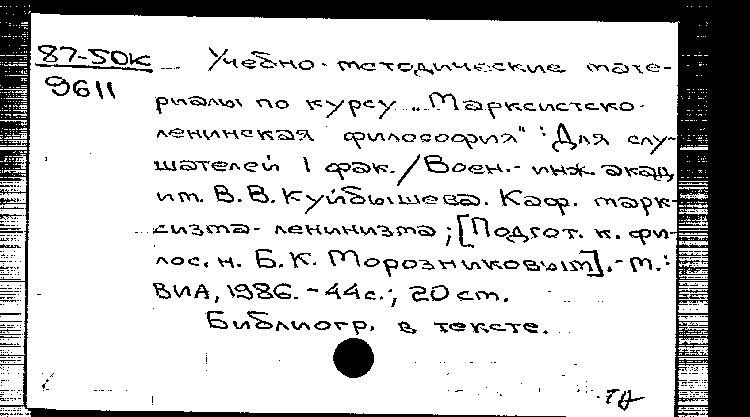 87-50к Учебно-методические мате-
9611
риалы по курсу „Марксистско-
ленинская философия" : Для слу-
шателей 1 фак. / Воен.-инж. акад.
им. В.В. Куйбышева. Каф. марк-
сизма-ленинизма ; [Подгот. к. фи-
лос. н. Б.К. Морозниковым]. - М. :
ВИА, 1986. - 44с. ; 20 см.
Библиогр. в тексте.